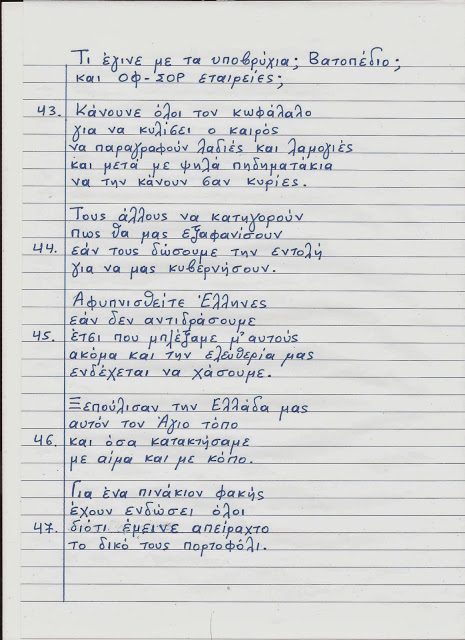 Τι έγινε με τα υποβρύχια; Βατοπέδιο;
και ΟΦ-ΣΟΡ εταιρείες;
43. Κάνουνε όλοι τον κωφάλαλο
για να κυλίσει ο καιρός
να παραγραφούν λαδιές και λαμογιές
και μετά με ψηλά πηδηματάκια
να την κάνουν σαν κυρίες.
Τους άλλους να κατηγορούν
πως θα μας εξαφανίσουν
44. εάν τους δώσουμε την εντολή
για να μας κυβερνήσουν.
Αφυπνισθείτε Έλληνες
εάν δεν αντιδράσουμε
45. έτσι που μπλέξαμε μ' αυτούς
ακόμα και την ελευθερία μας
ενδέχεται να χάσουμε.
Ξεπούλισαν την Ελλάδα μας
αυτόν τον Άγιο τόπο
46. και όσα κατακτήσαμε
με αίμα και με κόπο.
Για ένα πινάκιον φακής
έχουν ενδώσει όλοι
47. διότι έμεινε απείραχτο
το δικό τους πορτοφόλι.